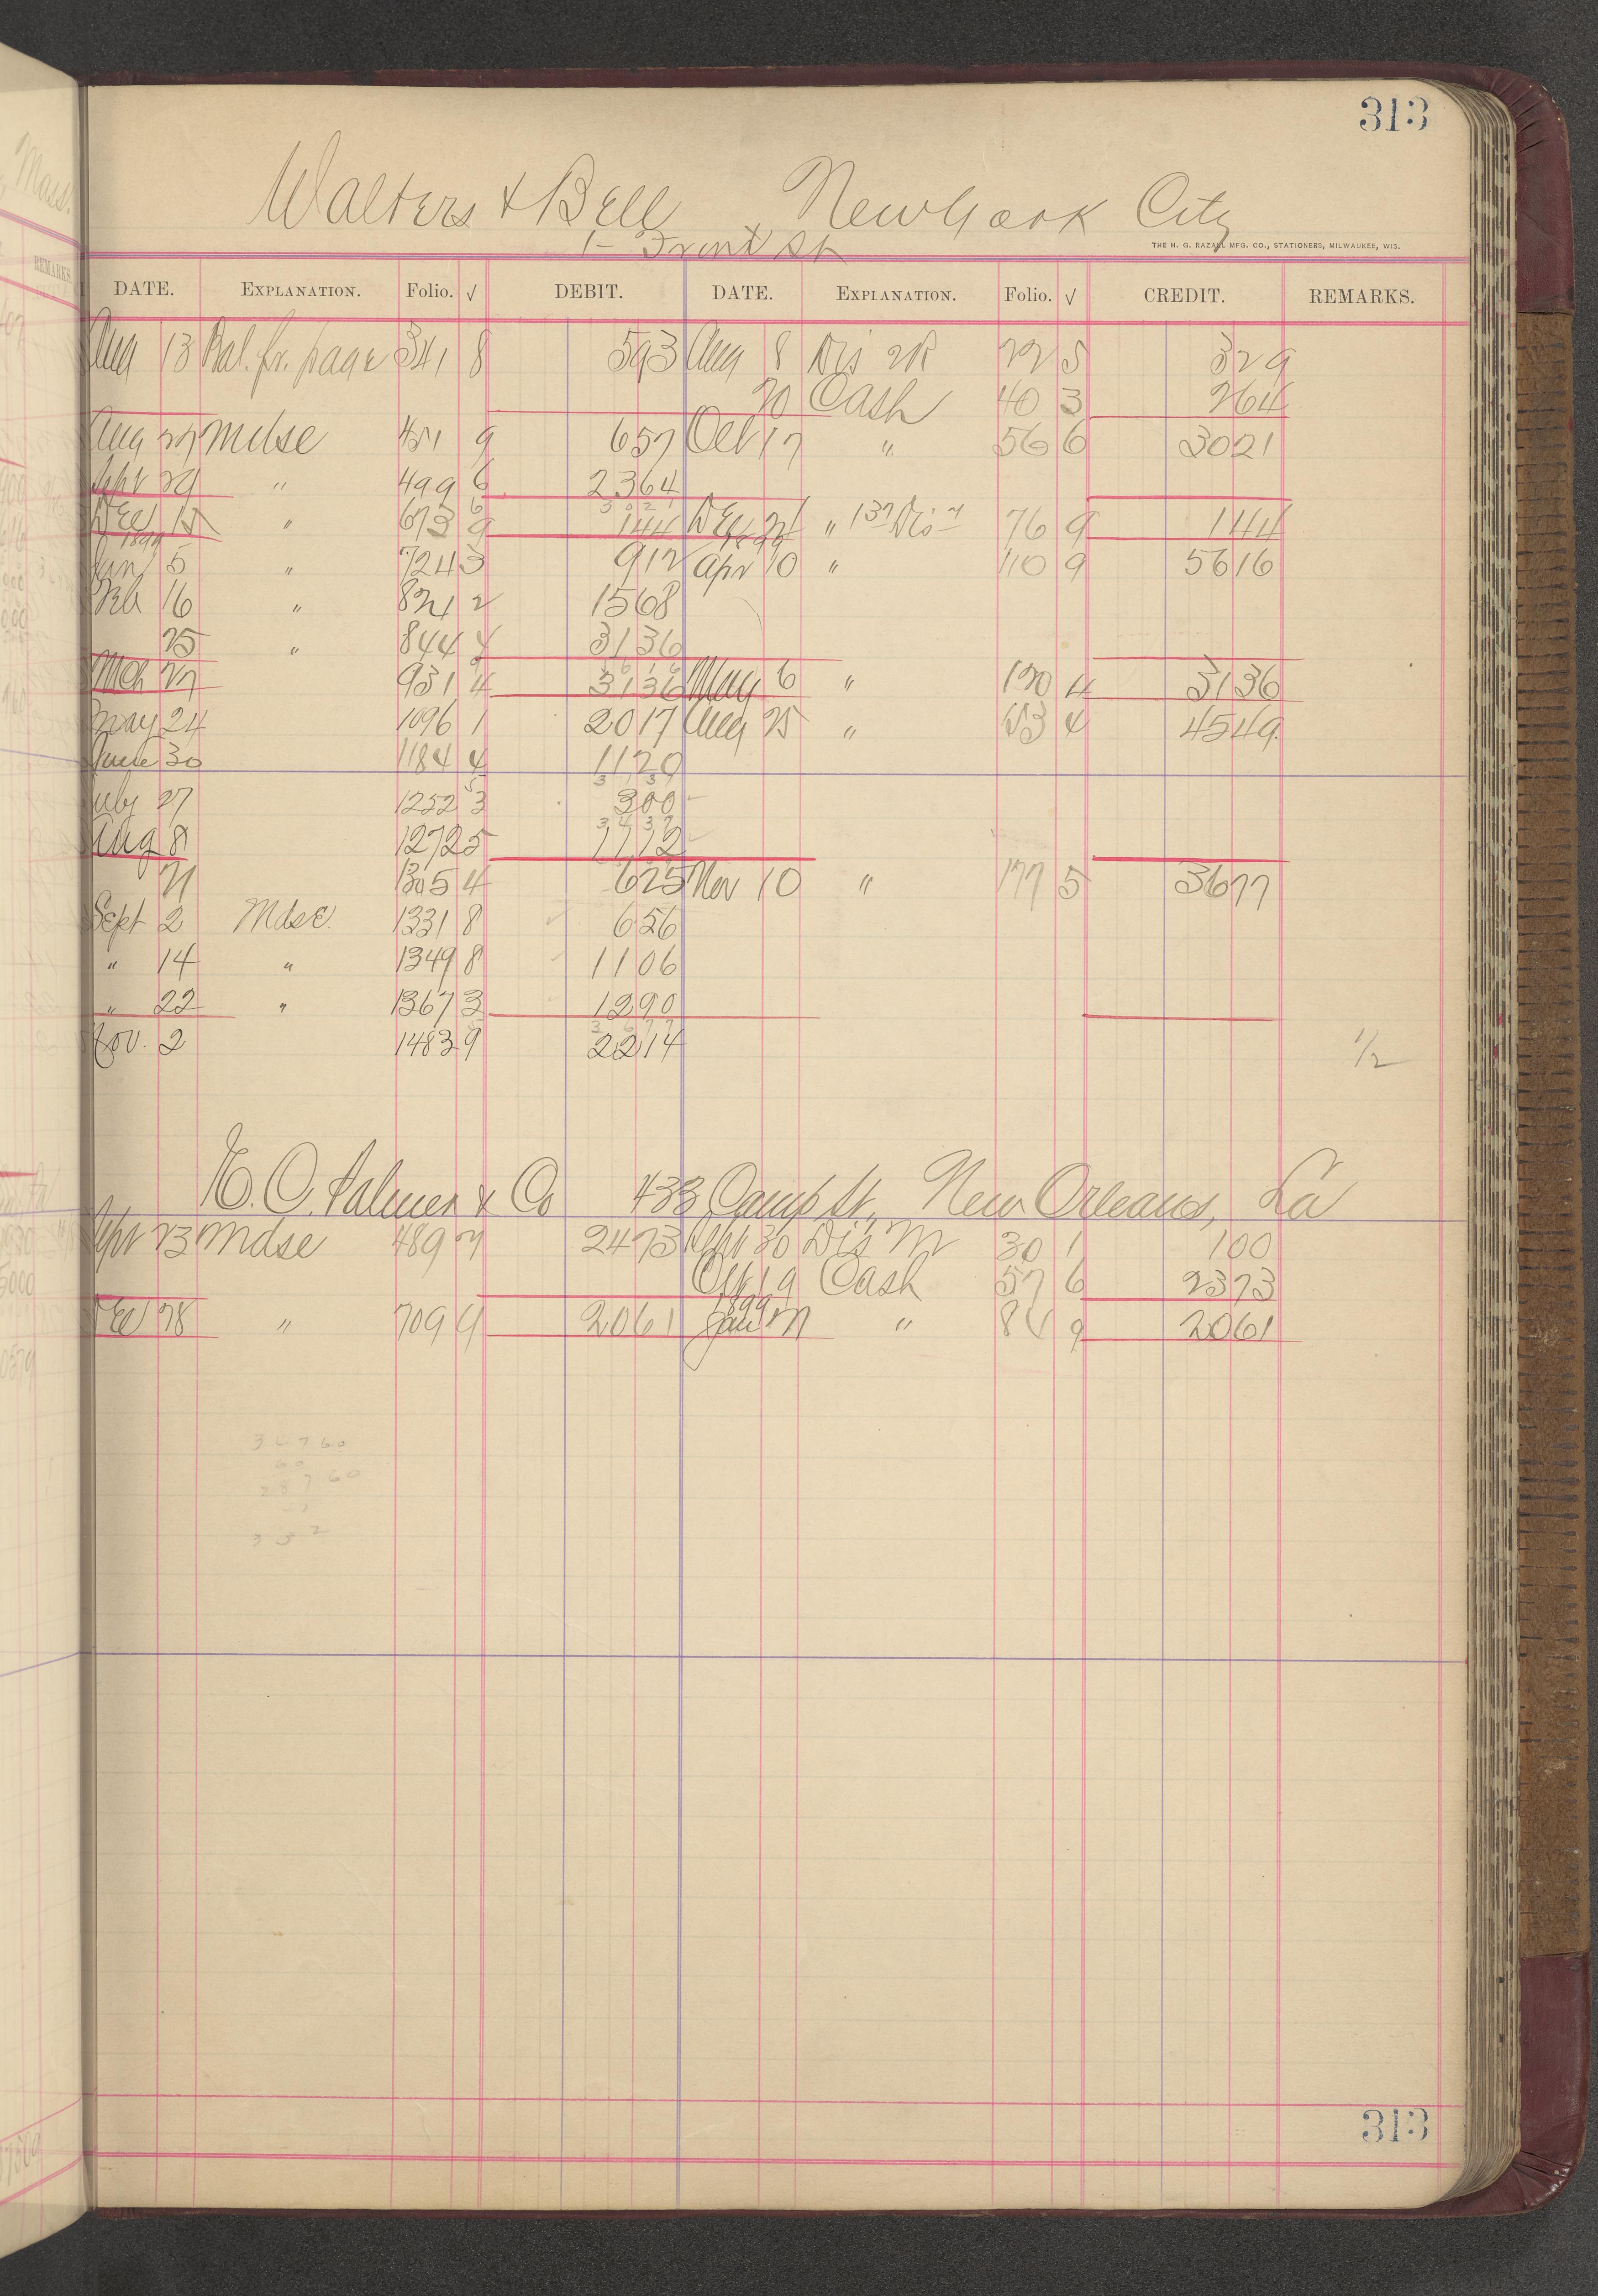 313
Walters & Bell New York City
1- Front St
THE H. G. RAZALL MFG. CO., STATIONERS, MILWAUKEE, WIS.
DATE. EXPLANATION. Folio. √ DEBIT. DATE. EXPLANATION. Folio. √ CREDIT. REMARKS.
Aug 13 Bal. fr. page 341 8 593 Aug 8 Dis 22 5 329
20 Cash 40 3 264
Aug 27 Mdse 451 9 657 Oct 17 " 56 6 3021
29 " 499 6 2364
Dec " 673 9 144 Dec " Dis 76 9 144
Jan 5 " 724 3 912 Apr 10 " 110 9 5616
Feb 16 " 821 2 1568
25 " 844 4 3136
Mch 27 931 4 3136 May 6 " 120 4 3136
May 24 1096 1 2017 Aug 25 " 4 4549
June 30 1184 4 1120
July 27 1252 3 300
Aug 8 1272 5 1112
21 1305 4 625 Nov 10 " 177 5 3677
Sept 2 Mdse. 1331 8 656
" 14 " 1349 8 1106
" 22 " 1367 3 1290
Nov. 2 1483 9 2214 1/2
E. O. Palmer & Co 433 Camp St, New Orleans, La
23 Mdse 489 7 2473 Sept 30 Dis M 30 1 100
Oct 19 Cash 57 6 2373
1899
Dec 28 " 709 9 2061 Jan " 9 2061
313